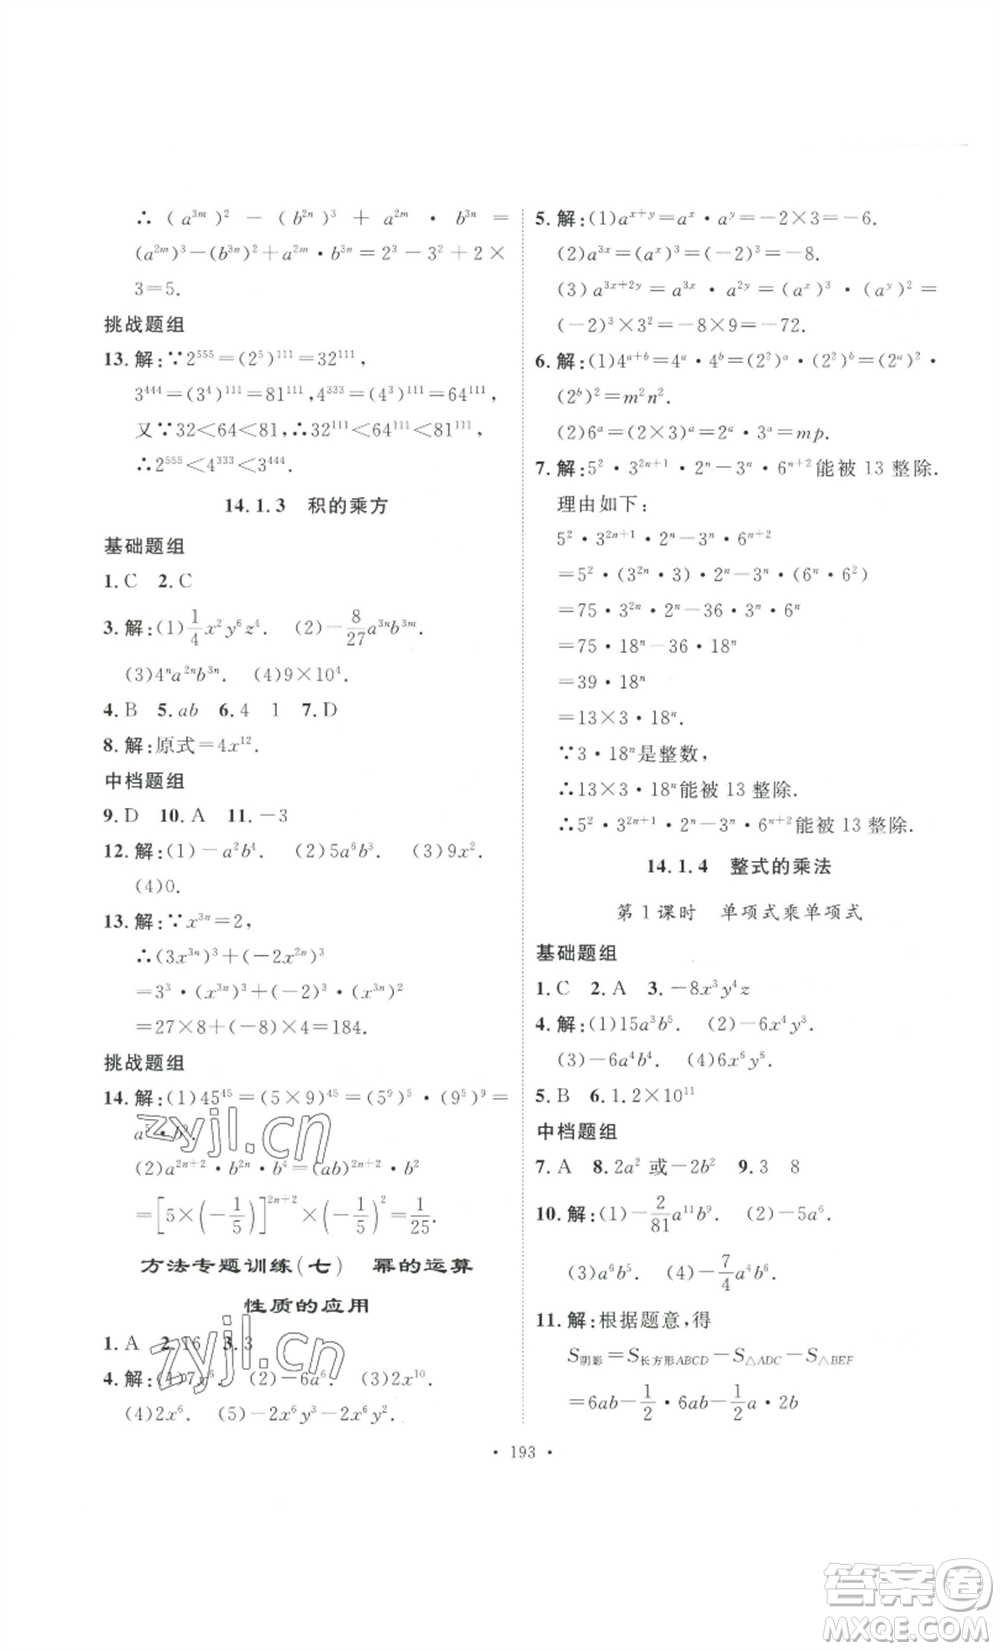 ∴ (a³ᵐ)² − (b²ⁿ)³ + a²ᵐ · b³ⁿ =
(a²ᵐ)³−(b³ⁿ)²+a²ᵐ · b³ⁿ=2³−3²+2×
3=5.
挑战题组
13. 解:∵2⁵⁵⁵=(2⁵)¹¹¹=32¹¹¹,
3⁴⁴⁴=(3⁴)¹¹¹=81¹¹¹,4³³³=(4³)¹¹¹=64¹¹¹,
又∵32<64<81,∴32¹¹¹<64¹¹¹<81¹¹¹,
∴2⁵⁵⁵<4³³³<3⁴⁴⁴.
14.1.3 积的乘方
基础题组
1. C 2. C
3. 解:(1)1/4 x²y⁶z⁴. (2)−8/27 a³ⁿb³ᵐ.
(3)4ⁿa²ⁿb³ⁿ. (4)9×10⁴.
4. B 5. ab 6. 4 1 7. D
8. 解:原式=4x¹².
中档题组
9. D 10. A 11. −3
12. 解:(1)−a²b⁴. (2)5a⁶b⁶. (3)9x².
(4)0.
13. 解:∵x³ⁿ=2,
∴(3x³ⁿ)³+(−2x²ⁿ)³
=3³·(x³ⁿ)³+(−2)³·(x³ⁿ)²
=27×8+(−8)×4=184.
挑战题组
14. 解:(1)45⁴⁵=(5×9)⁴⁵=(5⁹)⁵·(9⁵)⁹=
a⁵·b⁹.
(2)a²ⁿ⁺²·b²ⁿ·b⁴=(ab)²ⁿ⁺²·b²
=[5×(−1/5)]²ⁿ⁺²×(−1/5)²=1/25.
方法专题训练(七) 幂的运算
性质的应用
1. A 2. 16 3. 3
4. 解:(1)7x⁶. (2)−a⁶. (3)2x¹⁰.
(4)2x⁶. (5)−2x⁶y³−2x⁶y².
5. 解:(1)aˣ⁺ʸ=aˣ·aʸ=−2×3=−6.
(2)a³ˣ=(aˣ)³=(−2)³=−8.
(3)a³ˣ⁺²ʸ=a³ˣ·a²ʸ=(aˣ)³·(aʸ)²=
(−2)³×3²=−8×9=−72.
6. 解:(1)4ᵃ⁺ᵇ=4ᵃ·4ᵇ=(2²)ᵃ·(2²)ᵇ=(2ᵃ)²·
(2ᵇ)²=m²n².
(2)6ᵃ=(2×3)ᵃ=2ᵃ·3ᵃ=mp.
7. 解:5²·3²ⁿ⁺¹·2ⁿ−3ⁿ·6ⁿ⁺²能被13整除.
理由如下:
5²·3²ⁿ⁺¹·2ⁿ−3ⁿ·6ⁿ⁺²
=5²·(3²ⁿ·3)·2ⁿ−3ⁿ·(6ⁿ·6²)
=75·3²ⁿ·2ⁿ−36·3ⁿ·6ⁿ
=75·18ⁿ−36·18ⁿ
=39·18ⁿ
=13×3·18ⁿ.
∵3·18ⁿ是整数,
∴13×3·18ⁿ能被13整除.
∴5²·3²ⁿ⁺¹·2ⁿ−3ⁿ·6ⁿ⁺²能被13整除.
14.1.4 整式的乘法
第1课时 单项式乘单项式
基础题组
1. C 2. A 3. −8x³y⁴z
4. 解:(1)15a³b⁵. (2)−6x⁴y³.
(3)−6a⁴b⁴. (4)6x⁶y⁶.
5. B 6. 1.2×10¹¹
中档题组
7. A 8. 2a²或−2b² 9. 3 8
10. 解:(1)−2/81 a¹¹b⁹. (2)−5a⁶.
(3)a⁶b⁶. (4)−7/4 a⁴b⁶.
11. 解:根据题意,得
S阴影=S长方形ABCD−S△ADC−S△BEF
=6ab−1/2·6ab−1/2a·2b
· 193 ·
zyjl.cn
zyjl.cn
答案圈
MXQE.COM